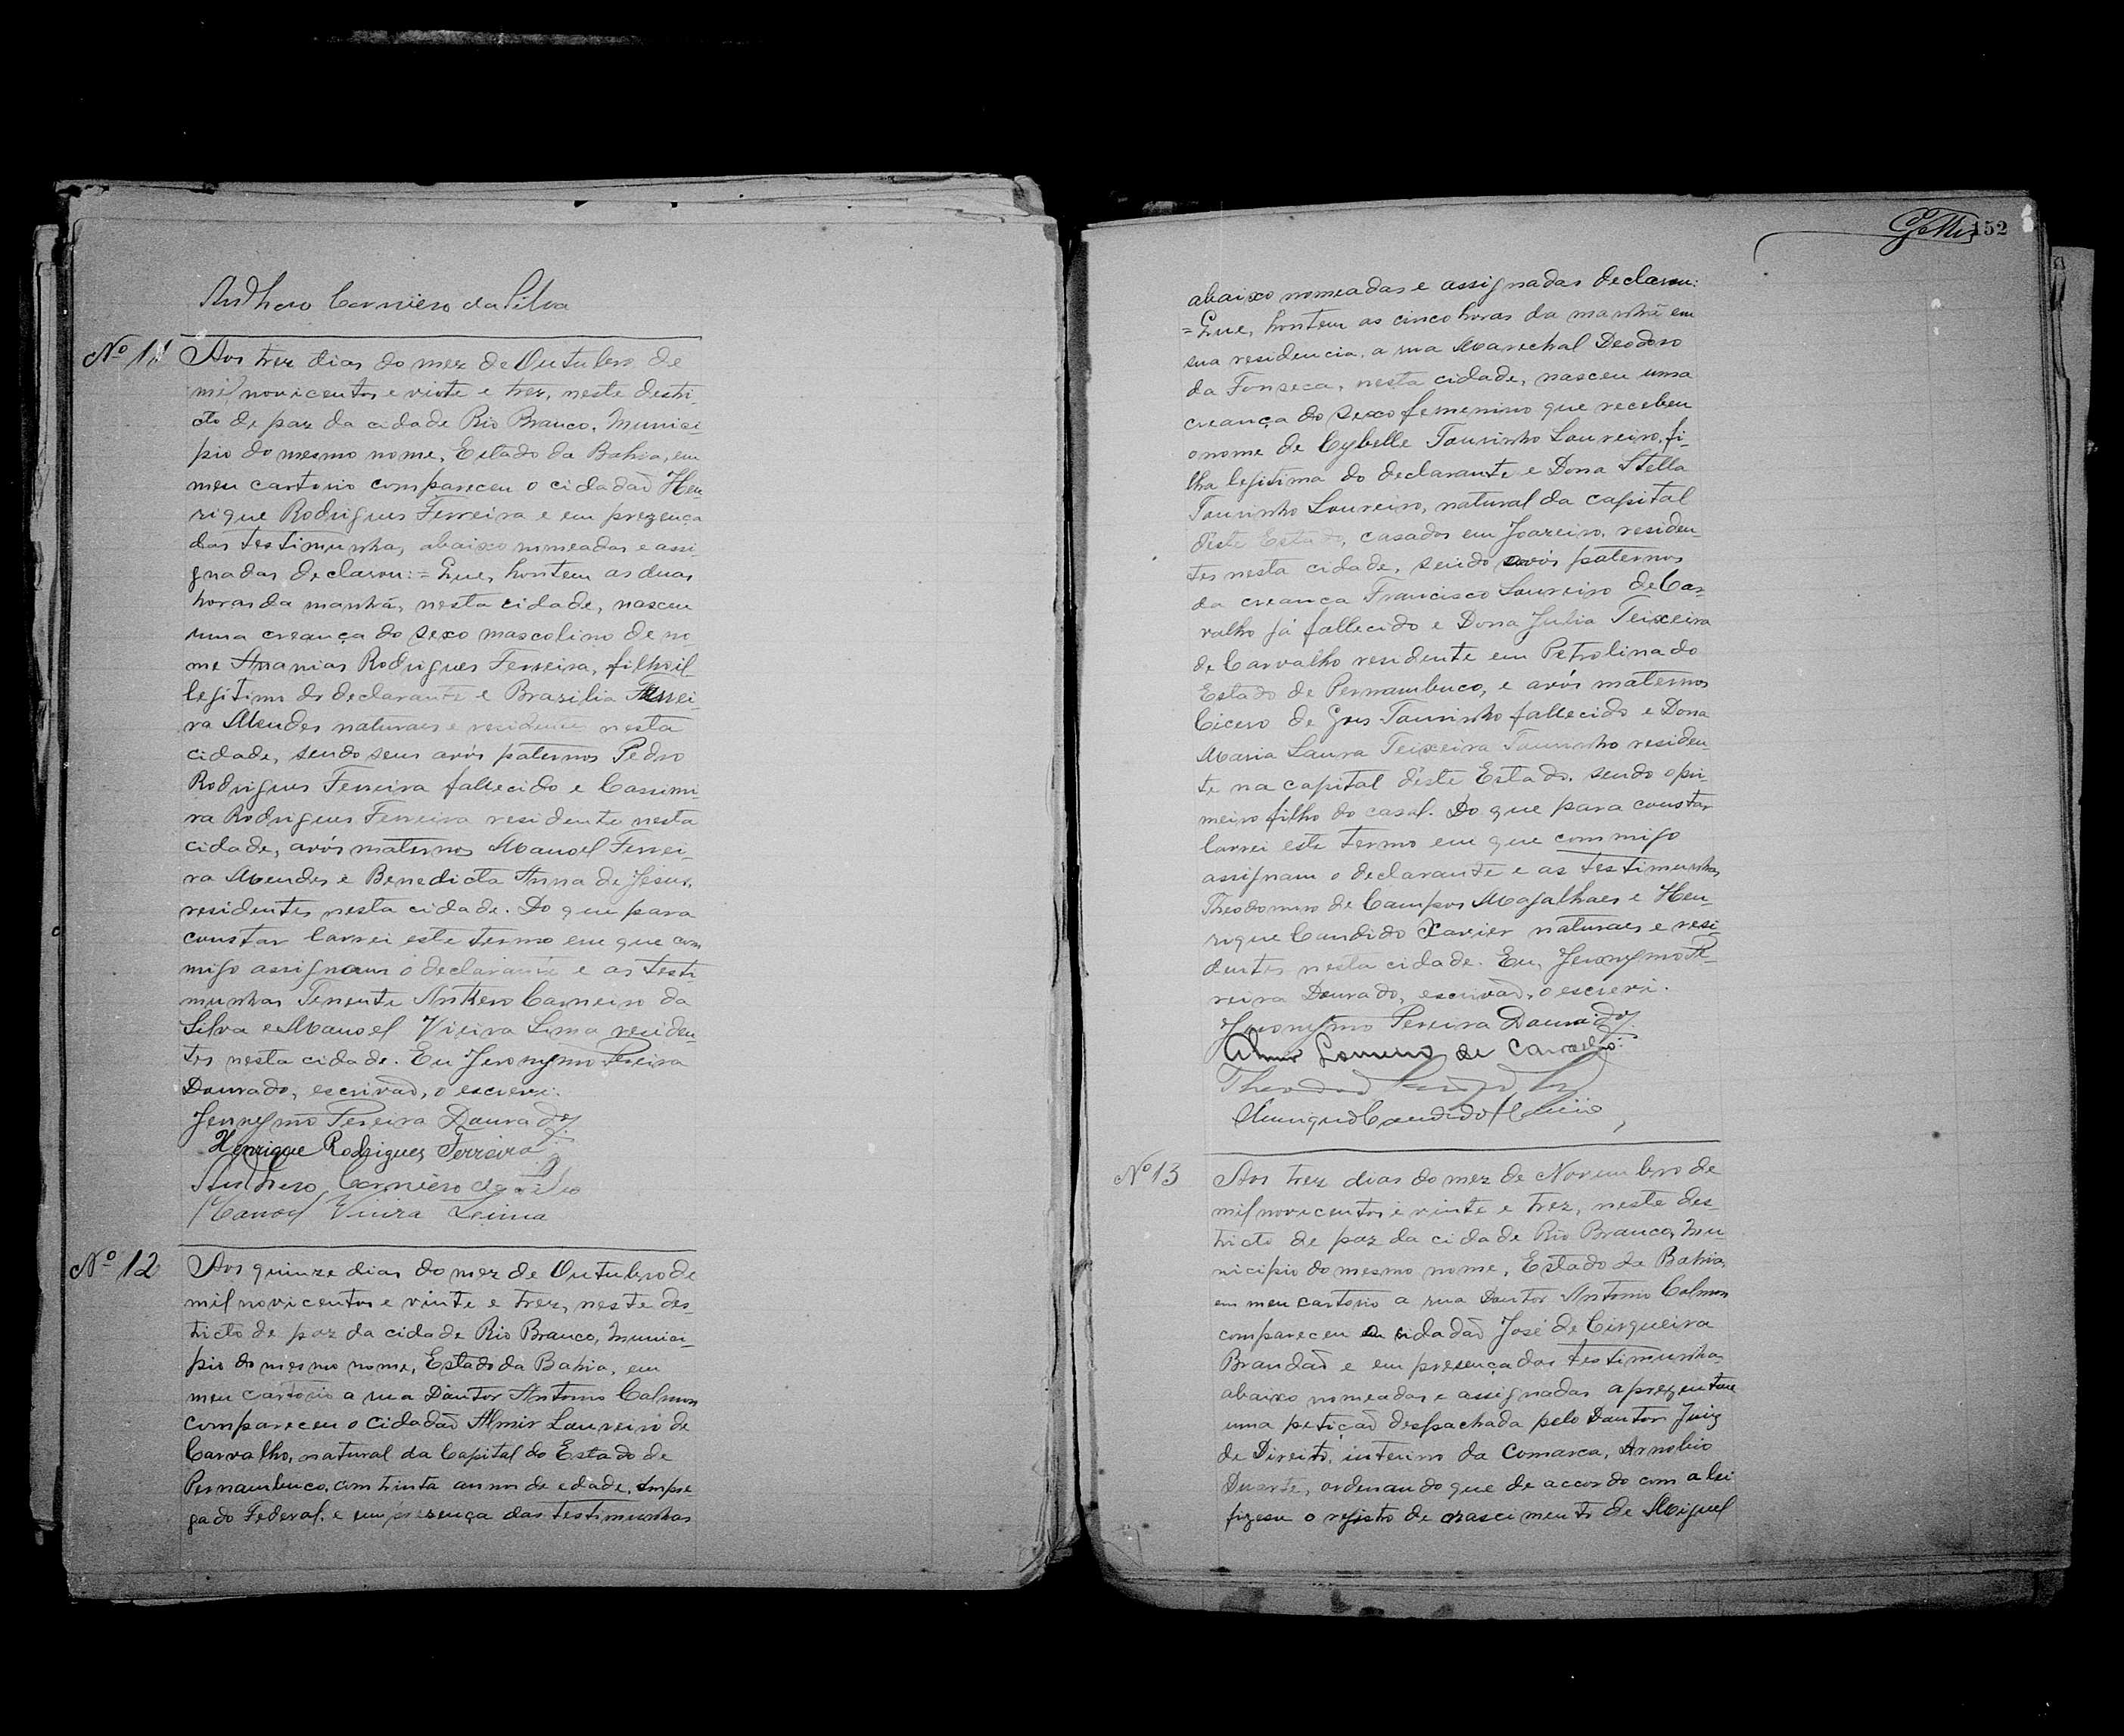 Anthero Carneiro da Silva
Nº 11 Aos trez dias do mez de Outubro de
mil novicentos e vinte e trez, neste destri-
cto de paz da cidade Rio Branco, Munici-
pio do mesmo nome, Estado da Bahia, em
meu cartorio compareceu o cidadaõ Hen-
rique Rodrigues Ferreira e em prezença
das testimunhas, abaixo nomeadas e assi-
gnadas declarou: = Que, hontem as duas
horas da manhã, nesta cidade, nasceu
uma creança do sexo mascolino de no-
me Ananias Rodrigues Ferreira, filho il-
legitimo do declarante e Brazilia Ferrei-
ra Mendes naturaes e residentes nesta
cidade, sendo seus avós paternos Pedro
Rodrigues Ferreira fallecido e Cassimi-
ra Rodrigues Ferreira residente nesta
cidade, avós maternos Manoel Ferrei-
ra Mendes e Benedicta Anna de Jesus,
residentes nesta cidade. Do que para
constar lavrei este termo em que com
migo assignam o declarante e as testi-
munhas Tenente Anthero Carneiro da
Silva e Manoel Vieira Lima residen-
tes nesta cidade. Eu Jeronymo Pereira
Dourado, escrivaõ, o escrevi.
Jeronymo Pereira Dourado
Henrique Rodrigues Ferreira
Anthero Carneiro da Silva
Manoel Vieira Leima
Nº 12 Aos quinze dias do mez de Outubro de
mil novicentos e vinte e trez, neste des-
tricto de paz da cidade Rio Branco, Munici-
pio do mesmo nome, Estado da Bahia, em
meu cartorio a rua Doutor Antonio Calmon
compareceu o cidadaõ Almir Loureiro de
Carvalho, natural da Capital do Estado de
Pernambuco, com trinta annos de edade, Empre-
gado Federal, e em prezença das testimunhas
152
abaixo nomeadas e assignadas declarou:
= Que, hontem as cinco horas da manhã em
sua residencia, a rua Marechal Deodoro
da Fonseca, nesta cidade, nasceu uma
creança do sexo femenino que recebeu
o nome de Cybelle Tourinho Loureiro, fi-
lha legitima do declarante e Dona Stella
Tourinho Loureiro, natural da capital
dèste Estado, casados em Joazeiro, residen-
tes nesta cidade, sendo avós paternos
da creança Francisco Loureiro de Car-
valho já fallecido e Dona Julia Teixeira
de Carvalho residente em Petrolina do
Estado de Pernambuco, e avós maternos
Cicero de Tourinho fallecido e Dona
Maria Laura Teixeira Tourinho residen-
te na capital dèste Estado, sendo o pri-
meiro filho do casal. Do que para constar
lavrei este termo em que commigo
assignam o declarante e as testimunhas
Theodomiro de Campos Magalhaes e Hen-
rique Candido Xavier naturaes e resi-
dentes nesta cidade. Eu, Jeronymo Pe-
reira Dourado, escrivaõ, o escrevi.
Jeronymo Pereira Dourado
Almir Loureiro de Carvalho
Henrique Candido
Nº 13 Aos trez dias do mez de Novembro de
mil novicentos e vinte e trez, neste des-
tricto de paz da cidade Rio Branco, Mu
nicipio do mesmo nome, Estado da Bahia,
em meu cartorio a rua Doutor Antonio Calmon
compareceu o cidadaõ José de Cirqueira
Brandaõ e em presença das testimunhas
abaixo nomeadas e assignadas aprezentou
uma petiçaõ despachada pelo Doutor Juiz
de Direito, interino da Comarca, Arnobio
Duarte, ordenando que de accordo com a lei
fizesse o registo de nascimento de Miguel